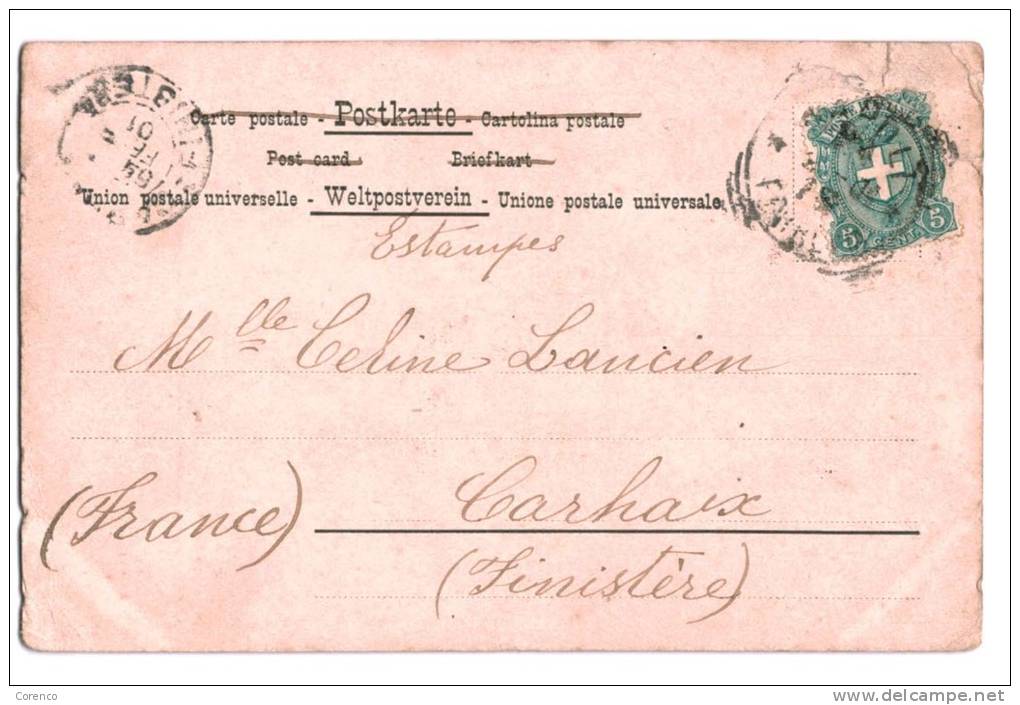 Carte postale - Postkarte - Cartolina postale
Post card Briefkart
Union postale universelle - Weltpostverein - Unione postale universale
Estampes
Mlle Celine Lancien
Carhaix
(France)
(Finistère)
FINISTERE
01
5 CENT. 5
Corenco
delcampe.net